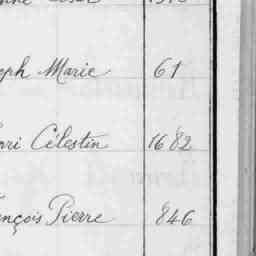 eph Marie 61
nri Célestin 1682
nçois Pierre 846